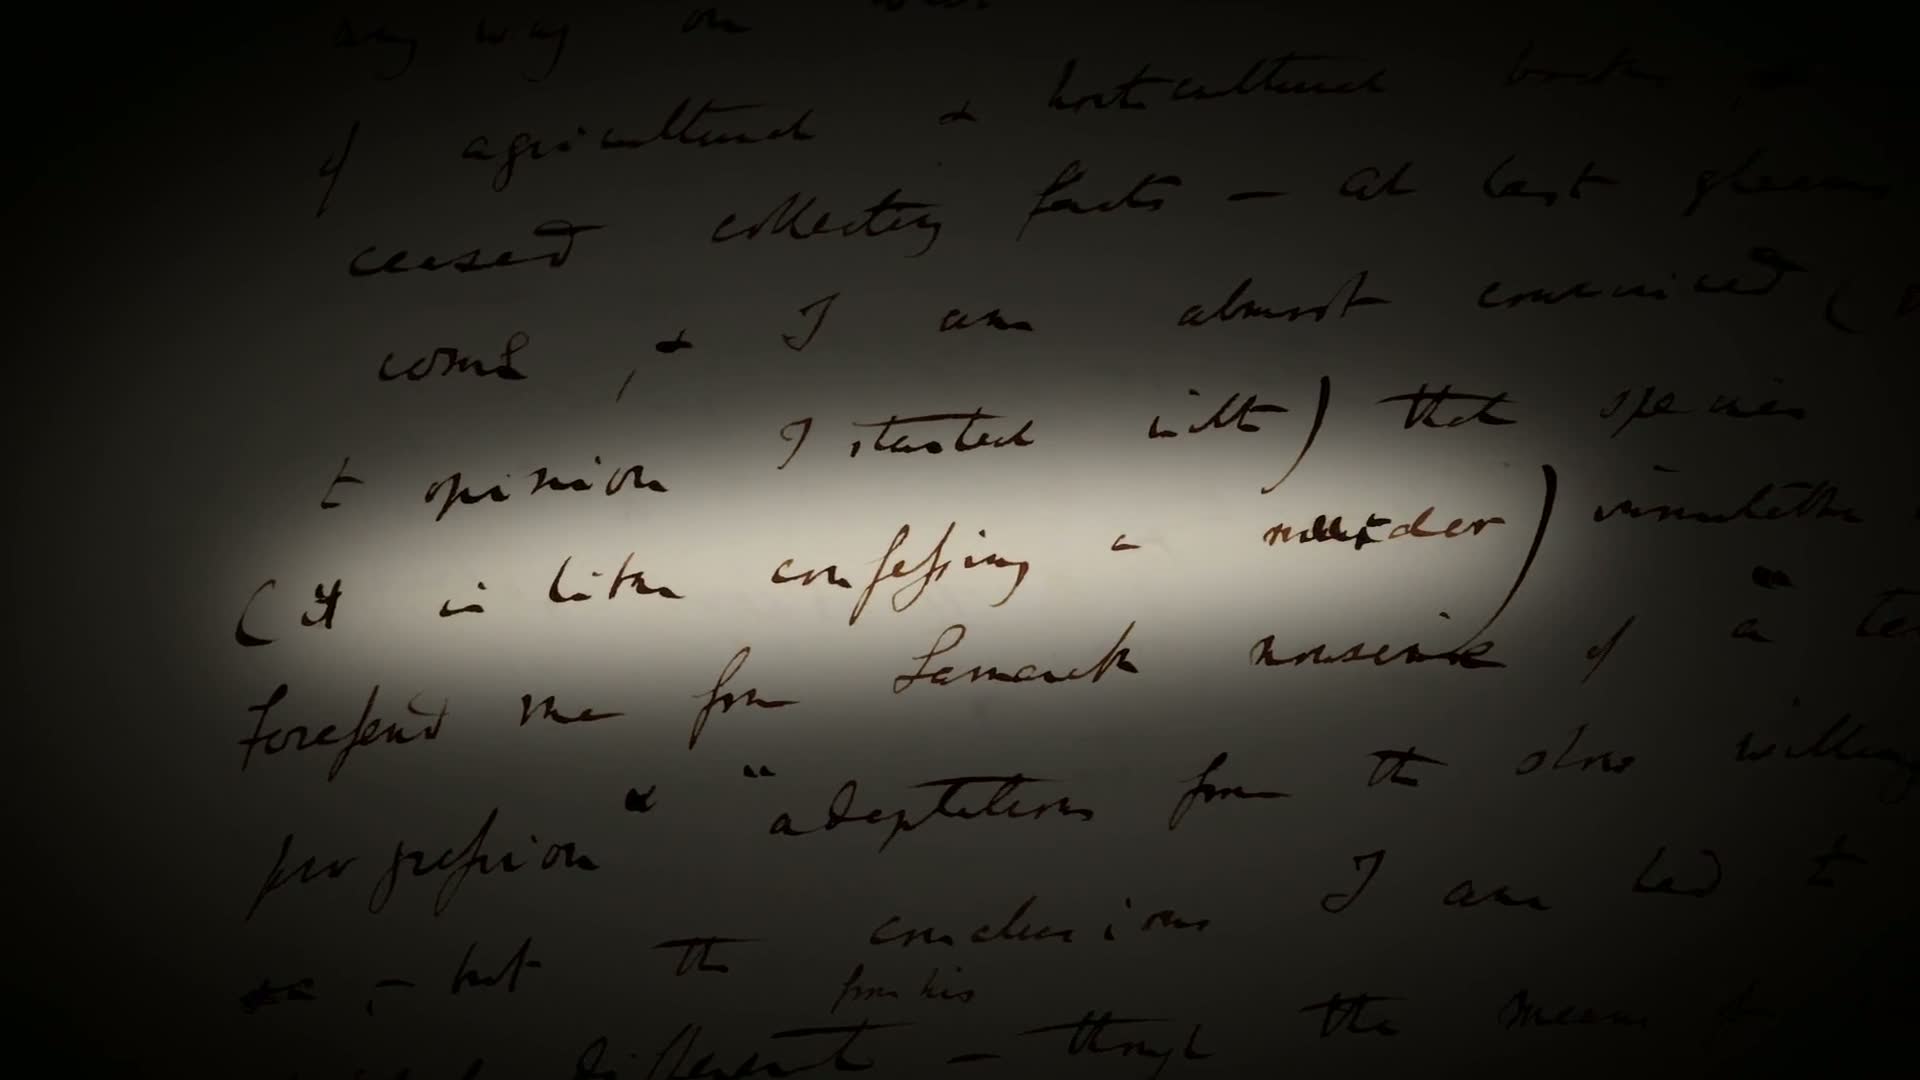 any way on
of agricultural & horticultural books, &
ceased collecting facts — At last gleams
come, & I am almost convinced (
to opinion I started with) that species
(it is like confessing a murder) immutable
Forefend me from Lamarck nonsense of a "
progression" "adaptations from the slow willing
&c, — but the conclusions I am led to
from his
different — though the means of